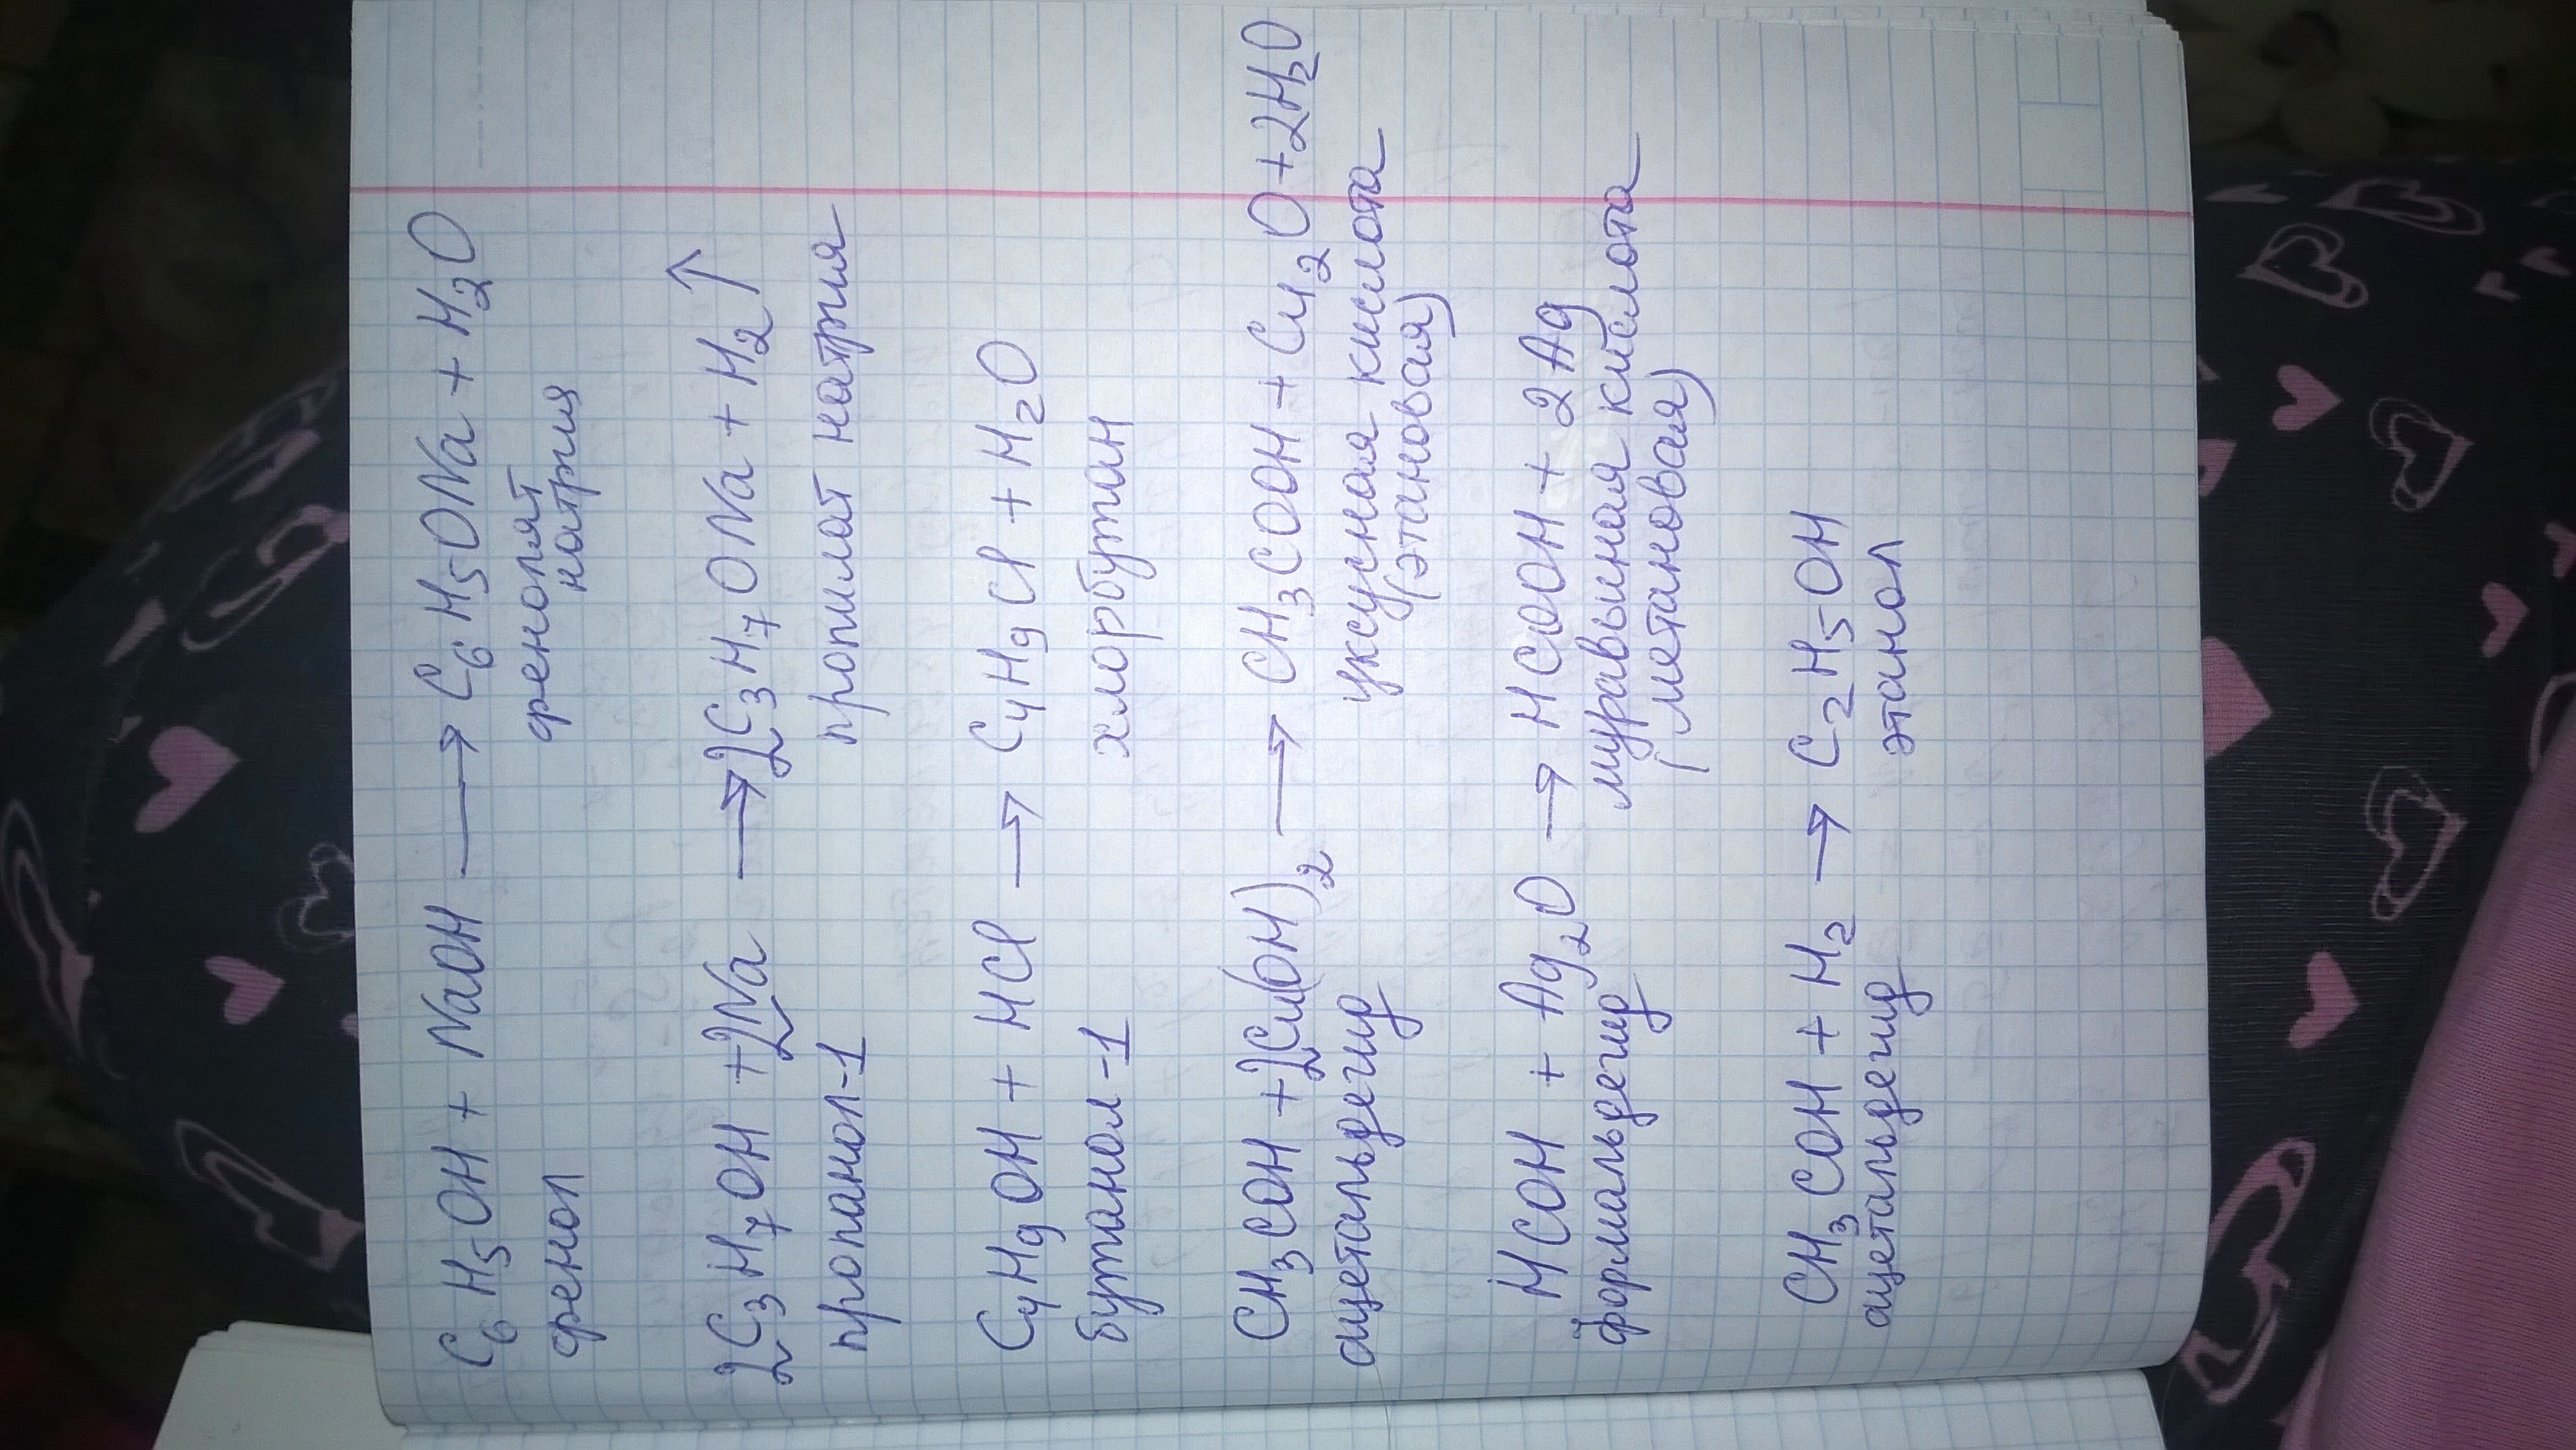 C₆H₅OH + NaOH → C₆H₅ONa + H₂O
фенол фенолят
натрия
2C₃H₇OH + 2Na → 2C₃H₇ONa + H₂↑
пропанол-1 пропилат натрия
C₄H₉OH + HCl → C₄H₉Cl + H₂O
бутанол-1 хлорбутан
CH₃COH + 2Cu(OH)₂ → CH₃COOH + Cu₂O + 2H₂O
ацетальдегид уксусная кислота
(этановая)
HCOH + Ag₂O → HCOOH + 2Ag
формальдегид муравьиная кислота
(метановая)
CH₃COH + H₂ → C₂H₅OH
ацетальдегид этанол